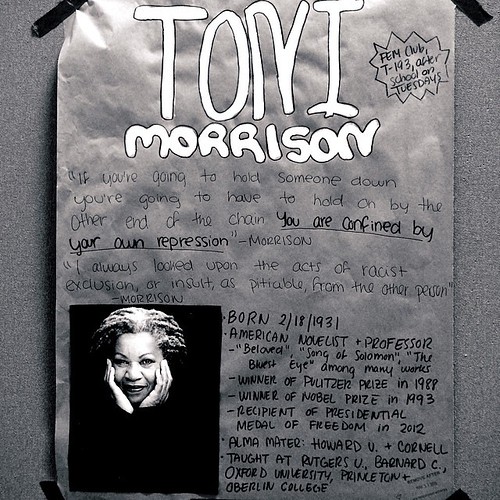 TONI
MORRISON
FEM Club,
T-193, after
school on
TUESDAYS
"If you're going to hold someone down
you're going to have to hold on by the
other end of the chain You are confined by
your own repression" -MORRISON
"I always looked upon the acts of racist
exclusion, or insult, as pitiable, from the other person"
-MORRISON
• BORN 2/18/1931
• AMERICAN NOVELIST + PROFESSOR
- "Beloved", "Song of Solomon", "The
Bluest Eye" among many works
- WINNER OF PULITZER PRIZE in 1988
- WINNER OF NOBEL PRIZE in 1993
- RECIPIENT OF PRESIDENTIAL
MEDAL OF FREEDOM in 2012
• ALMA MATER: HOWARD U. + CORNELL
• TAUGHT AT RUTGERS U., BARNARD C.,
OXFORD UNIVERSITY, PRINCETON +
OBERLIN COLLEGE